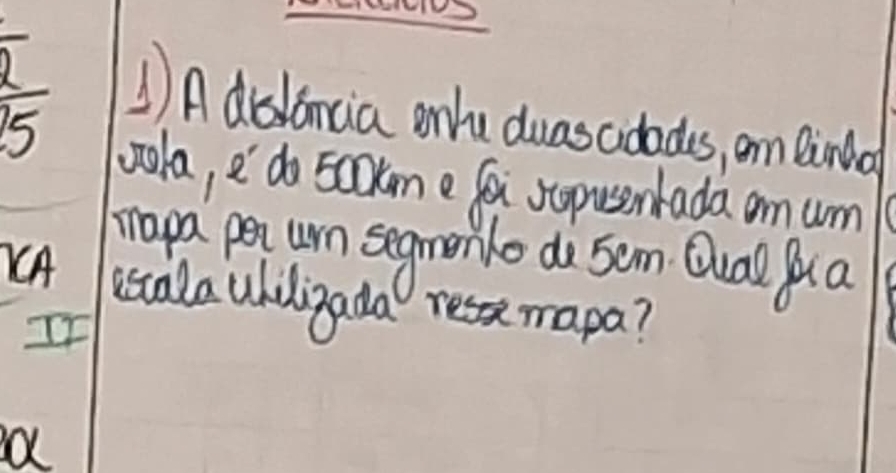 Exercícios
1) A distância entre duas cidades, em linha
reta, é de 500km e foi representada em um
mapa por um segmento de 5cm. Qual foi a
escala utilizada nesse mapa?
2
25
CA
II